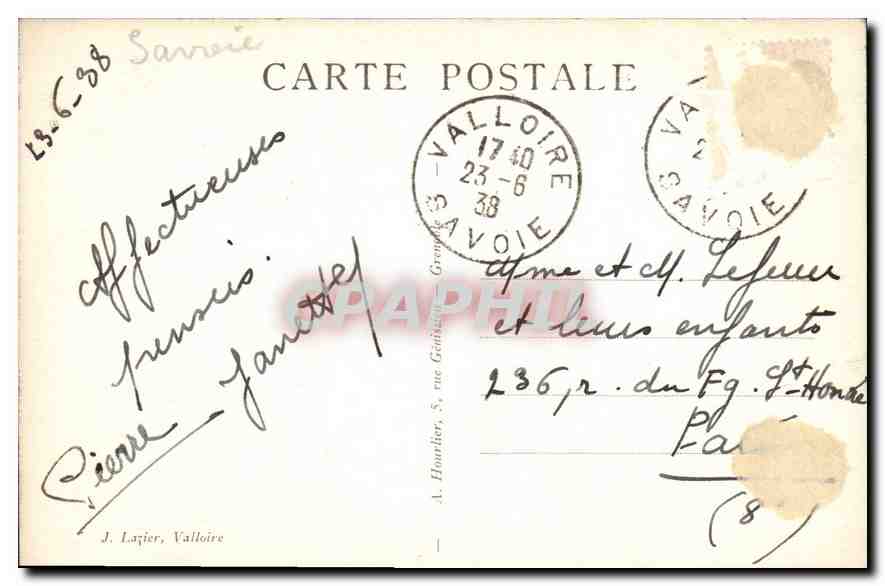 Savoie
23-6-38
CARTE POSTALE
VALLOIRE
17 40
23-6
38
SAVOIE
VA
2
SAVOIE
Affectueuses
pensées.
Janette
Pierre
Mme et M. Lefeuvre
et leurs enfants
236, r. du Fg. St-Honoré
Pari
(8
A. Hourlier, 5, rue Génissieu - Grenoble
J. Lazier, Valloire
CPAPHIL